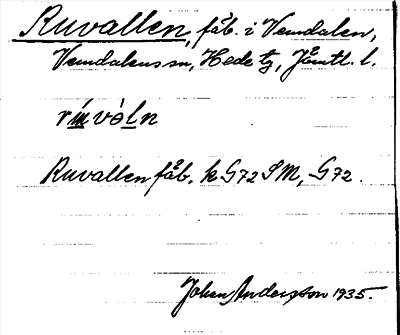 Ruvallen, fäb. i Vemdalen,
Vemdalens sn, Hede tg, Jämtl. l.
Ruvallen fåb. k G72 SM, G72.
Johan Andersson 1935.